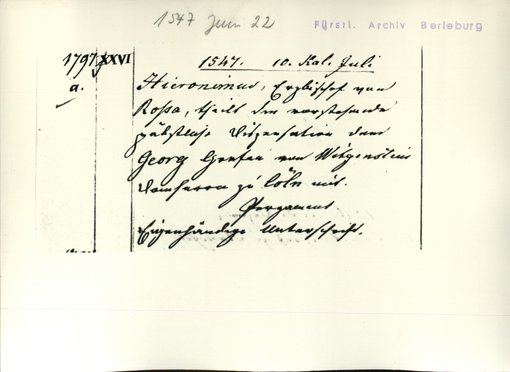 1547 Juni 22
Fürstl. Archiv Berleburg
1797 XXVI
a.
1547. 10. Kal. Juli.
Hieronimus, Erzbischof von
Rossa, theilt die vorstehende
päbstliche Dispensation dem
Georg Grafen von Witgenstein
Domherrn zu Cöln mit.
Pergament.
Eigenhändige Unterschrift.